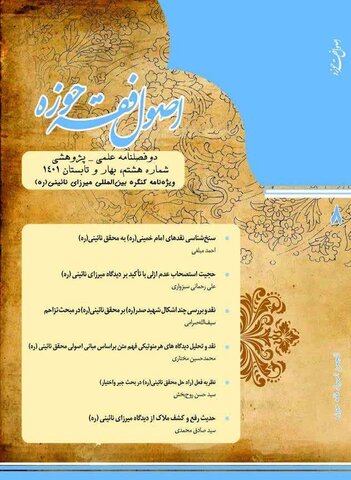 اصول فقه حوزه
دو فصلنامه علمی - پژوهشی
شماره هشتم، بهار و تابستان ۱۴۰۱
ویژه‌نامه کنگره بین‌المللی میرزای نائینی(ره)
۸
سنخ‌شناسی نقدهای امام خمینی(ره) به محقق نائینی(ره)
احمد مبلغی
حجیت استصحاب عدم ازلی با تأکید بر دیدگاه میرزای نائینی(ره)
علی رحمانی سبزواری
نقد و بررسی چند اشکال شهید صدر(ره) بر محقق نائینی(ره) در مبحث تزاحم
سیف‌الله صرامی
نقد و تحلیل دیدگاه های هرمنوتیکی فهم متن براساس مبانی اصولی محقق نائینی (ره)
محمدحسین مختاری
نظریه فعل (راه حل محقق نائینی(ره) در بحث جبر و اختیار)
سید حسن روح‌بخش
حدیث رفع و کشف ملاک از دیدگاه میرزای نائینی (ره)
سید صادق محمدی
اصول فقه حوزه